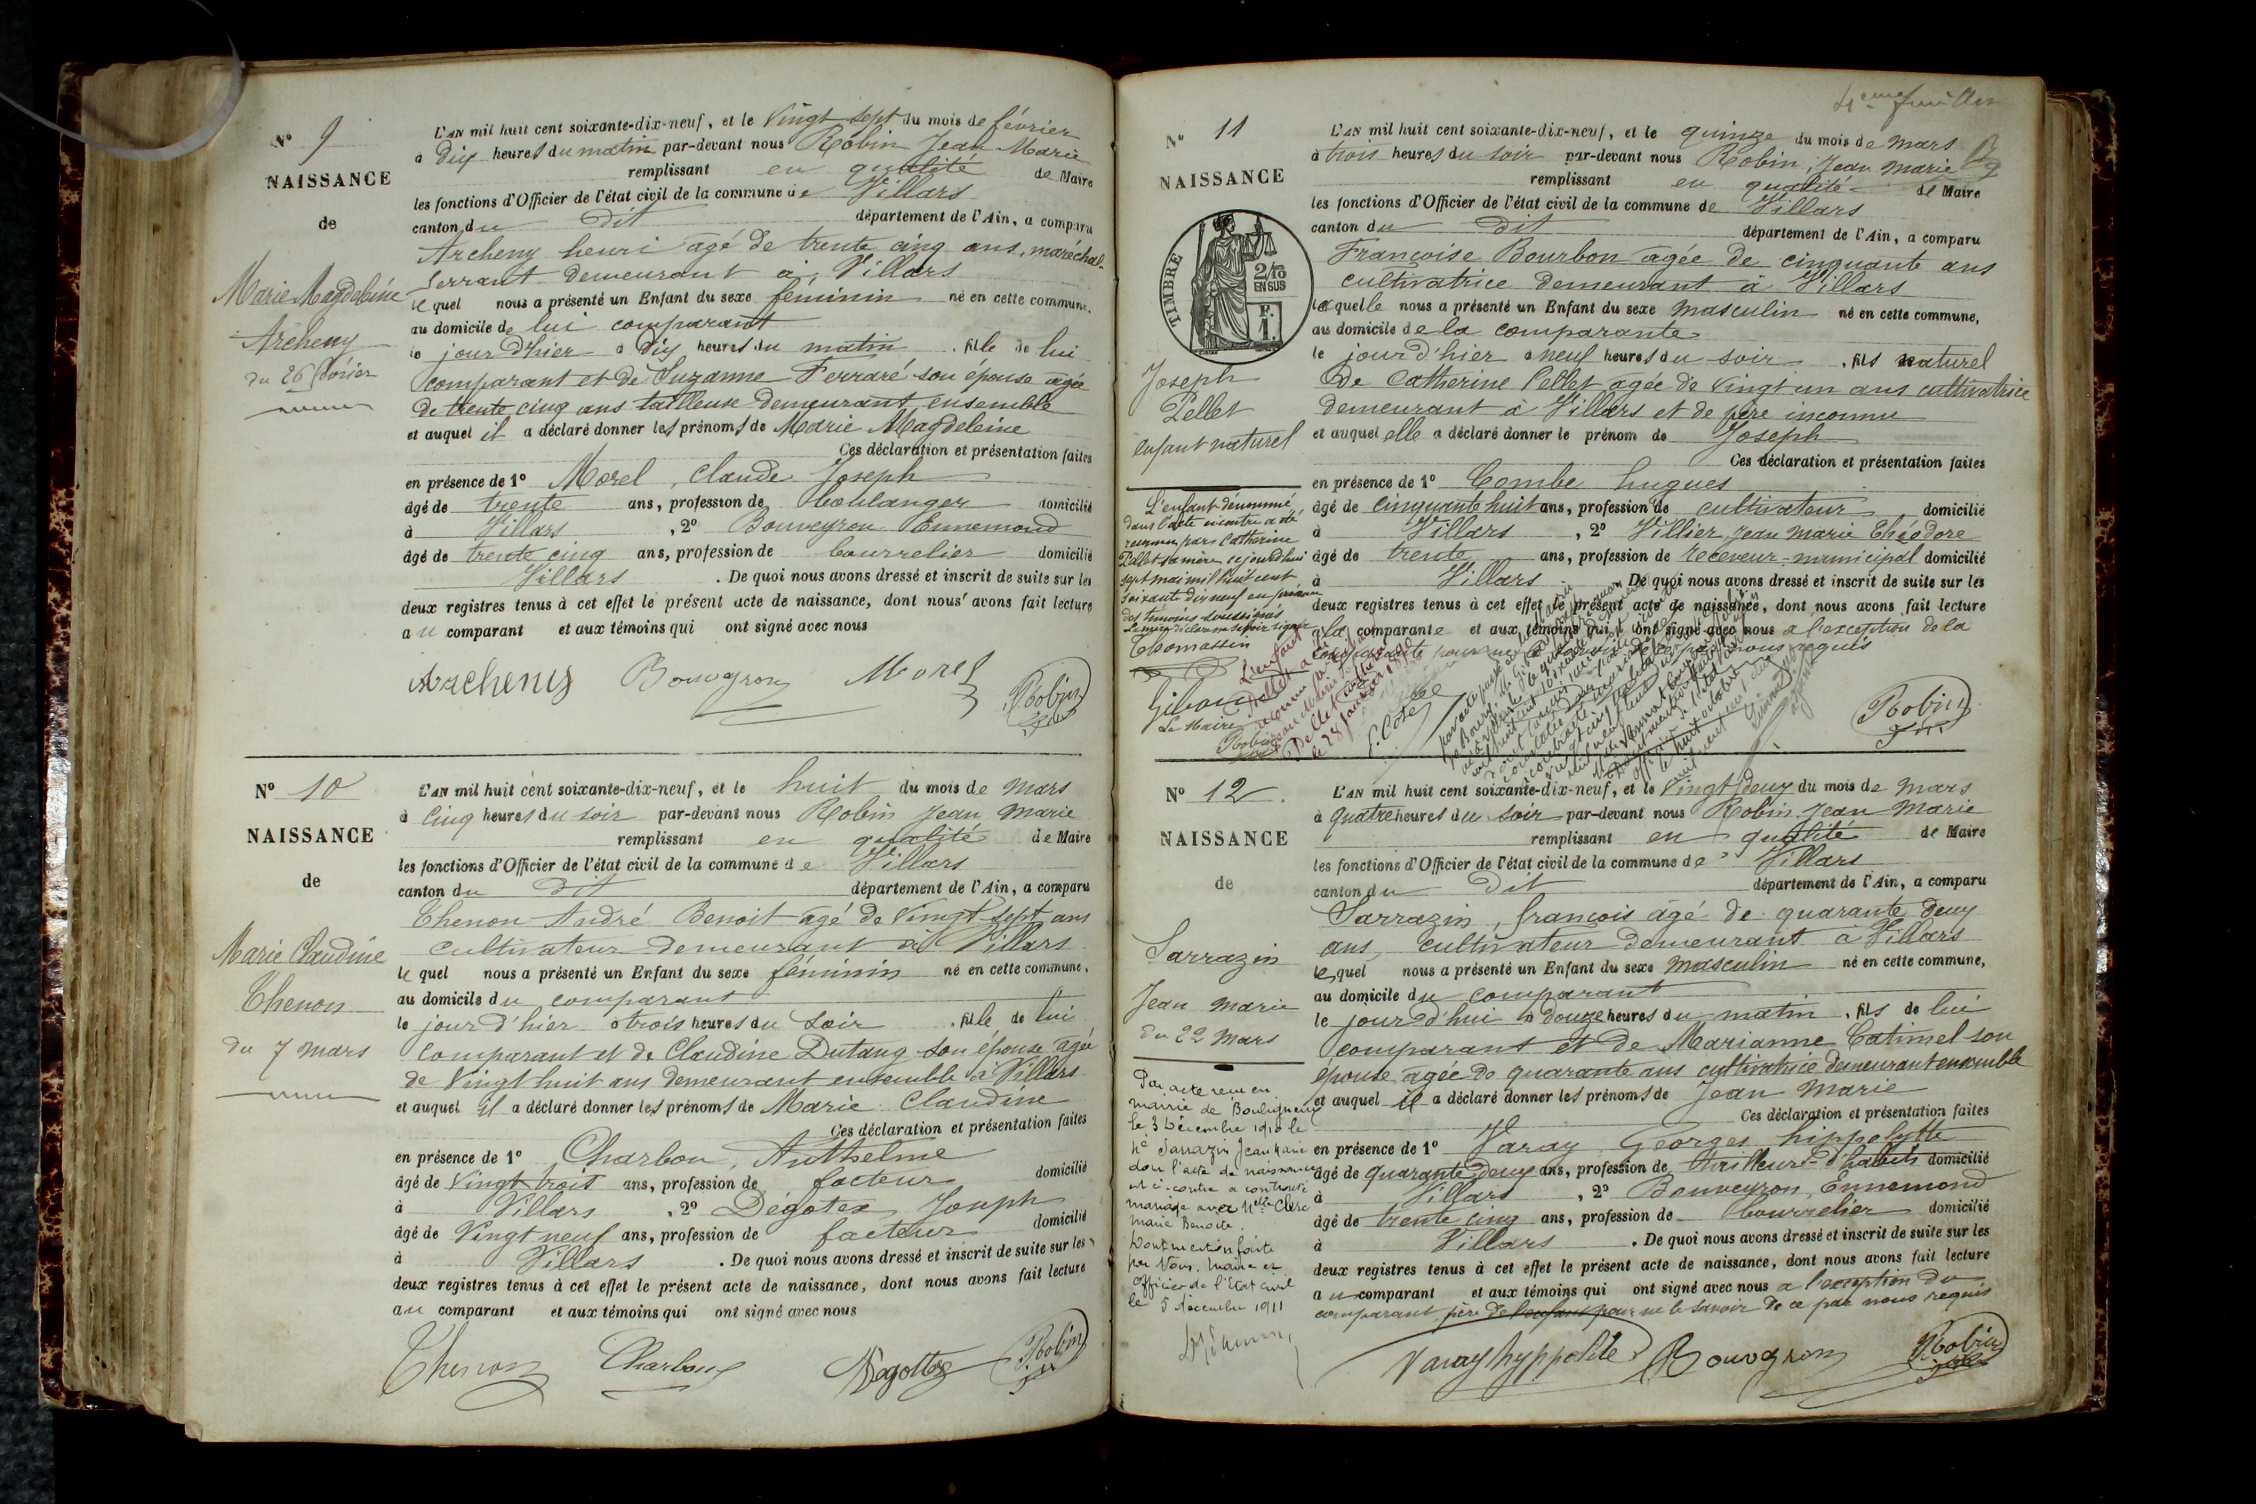 N° 9
NAISSANCE
de
Marie Magdeleine
Archeny
du 26 février
L'AN mil huit cent soixante-dix-neuf, et le Vingt sept du mois de février
à dix heures du matin par-devant nous Robin Jean Marie
remplissant en qualité de Maire
les fonctions d'Officier de l'état civil de la commune de Villars
canton du dit département de l'Ain, a comparu
Archeny henri agé de trente cinq ans, maréchal-
ferrant demeurant à Villars
le quel nous a présenté un Enfant du sexe féminin né en cette commune,
au domicile de lui comparant
le jour d'hier à dix heures du matin , fille de lui
comparant et de Suzanne Ferraré son épouse agée
de trente cinq ans tailleuse demeurant ensemble
et auquel il a déclaré donner les prénoms de Marie Magdeleine
Ces déclaration et présentation faites
en présence de 1° Morel, Claude Joseph
âgé de trente ans, profession de boulanger domicilié
à Villars , 2° Bouveyron Ennemond
âgé de trente cinq ans, profession de bourrelier domicilié
Villars . De quoi nous avons dressé et inscrit de suite sur les
deux registres tenus à cet effet le présent acte de naissance, dont nous avons fait lecture
au comparant et aux témoins qui ont signé avec nous
Archeny Bouveyron Morel Robin
N° 10
NAISSANCE
de
Marie Claudine
Thenon
du 7 mars
L'AN mil huit cent soixante-dix-neuf, et le huit du mois de mars
à cinq heures du soir par-devant nous Robin Jean Marie
remplissant en qualité de Maire
les fonctions d'Officier de l'état civil de la commune de Villars
canton du dit département de l'Ain, a comparu
Thenon André Benoit agé de Vingt-sept ans
cultivateur demeurant à Villars
le quel nous a présenté un Enfant du sexe féminin né en cette commune,
au domicile du comparant
le jour d'hier à trois heures du soir , fille de lui
comparant et de Claudine Dutang son épouse agée
de Vingt huit ans demeurant ensemble à Villars
et auquel il a déclaré donner les prénoms de Marie Claudine
Ces déclaration et présentation faites
en présence de 1° Charbon, Anthelme
âgé de Vingt trois ans, profession de facteur domicilié
à Villars , 2° Dégotex Joseph
âgé de Vingt neuf ans, profession de facteur domicilié
à Villars . De quoi nous avons dressé et inscrit de suite sur les
deux registres tenus à cet effet le présent acte de naissance, dont nous avons fait lecture
au comparant et aux témoins qui ont signé avec nous
Thenon Charbon Robin
4eme feuillet
N° 11
NAISSANCE
TIMBRE
2/10
EN SUS
F.
1.
Joseph
Pellet
enfant naturel
L'AN mil huit cent soixante-dix-neuf, et le quinze du mois de mars
à trois heures du soir par-devant nous Robin, Jean Marie
remplissant en qualité de Maire
les fonctions d'Officier de l'état civil de la commune de Villars
canton du dit département de l'Ain, a comparu
Françoise Bourbon agée de cinquante ans
cultivatrice demeurant à Villars
laquelle nous a présenté un Enfant du sexe masculin né en cette commune,
au domicile de la comparante
le jour d'hier à neuf heures du soir , fils naturel
de Catherine Pellet agée de vingt un ans cultivatrice
demeurant à Villars et de père inconnu
et auquel elle a déclaré donner le prénom de Joseph
Ces déclaration et présentation faites
en présence de 1° Combe hugues
âgé de cinquante huit ans, profession de cultivateur domicilié
à Villars , 2° Villier Jean Marie Théodore
âgé de trente ans, profession de receveur-municipal domicilié
à Villars . De quoi nous avons dressé et inscrit de suite sur les
deux registres tenus à cet effet le présent acte de naissance, dont nous avons fait lecture
à la comparante et aux témoins qui ont signé avec nous à l'exception de la
comparante pour ne le savoir de ce par nous requis
L'enfant dénommé
dans l'acte ci contre a été
reconnu par Catherine
Pellet sa mère, ce jourd'hui
sept mai mil huit cent
soixante dix neuf en présence
des témoins soussignés
Thomassin
Le Maire
Robin
le 28 janvier
Robin
N° 12
NAISSANCE
de
Sarrazin
Jean Marie
du 22 mars
L'AN mil huit cent soixante-dix-neuf, et le Vingt deux du mois de mars
à quatre heures du soir par-devant nous Robin Jean Marie
remplissant en qualité de Maire
les fonctions d'Officier de l'état civil de la commune de Villars
canton du dit département de l'Ain, a comparu
Sarrazin, françois agé de quarante deux
ans, cultivateur demeurant à Villars
le quel nous a présenté un Enfant du sexe masculin né en cette commune,
au domicile du comparant
le jour d'hui à douze heures du matin , fils de lui
comparant et de Marianne Catimel son
épouse agée de quarante ans cultivatrice demeurant ensemble
et auquel il a déclaré donner les prénoms de Jean Marie
Ces déclaration et présentation faites
en présence de 1° Varay Georges hippolytte
âgé de quarante deux ans, profession de tailleur d'habits domicilié
à Villars , 2° Bouveyron, Ennemond
âgé de trente cinq ans, profession de bourrelier domicilié
à Villars . De quoi nous avons dressé et inscrit de suite sur les
deux registres tenus à cet effet le présent acte de naissance, dont nous avons fait lecture
au comparant et aux témoins qui ont signé avec nous à l'exception du
comparant père de l'enfant pour ne le savoir de ce par nous requis
Par acte reçu en
mairie de Bouligneux
le 3 Décembre 1910 le
né Sarrazin Jean Marie
dont l'acte de naissance
est ci-contre a contracté
mariage avec Melle Clerc
Marie Benoite.
Dont mention faite
par Nous, Maire et
Officier de l'Etat civil
le 5 décembre 1911
Varay hyppolite Bouveyron Robin